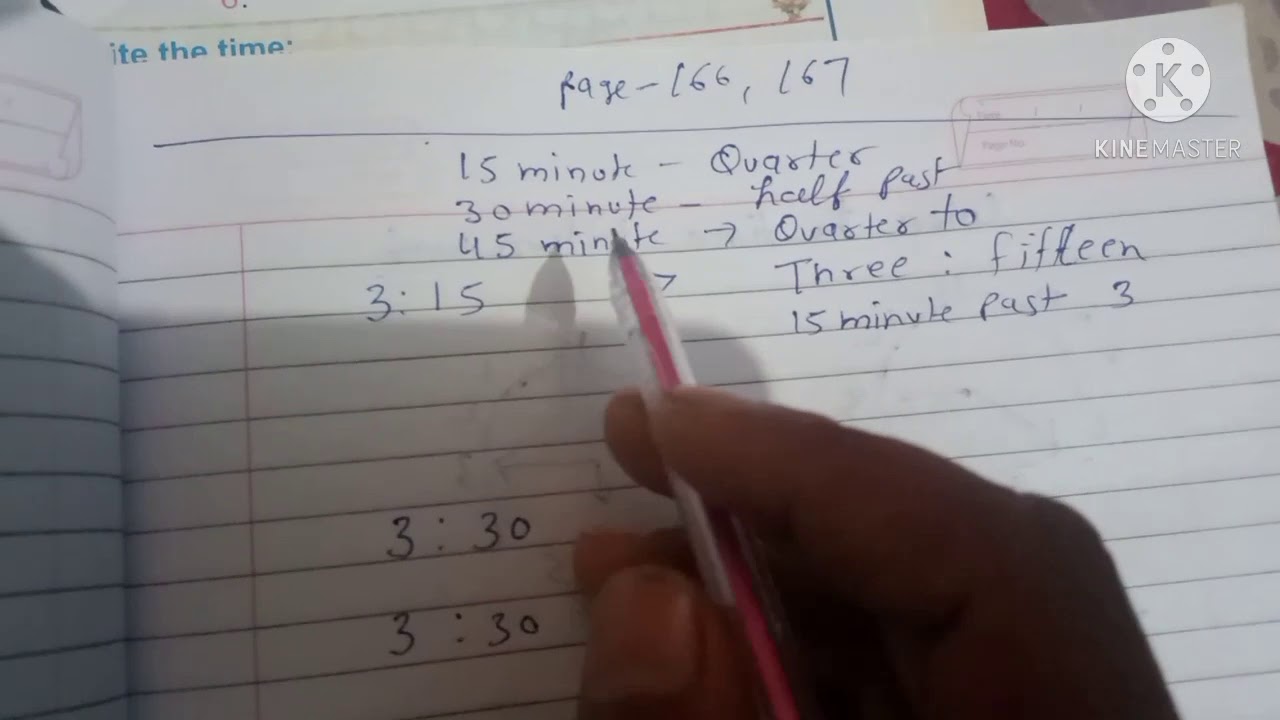 ite the time:
page - 166, 167
K
KINEMASTER
Page No.
15 minute - Quarter
30 minute - half past
45 minute → Quarter to
3:15 > Three : fifteen
15 minute past 3
3:30
3:30